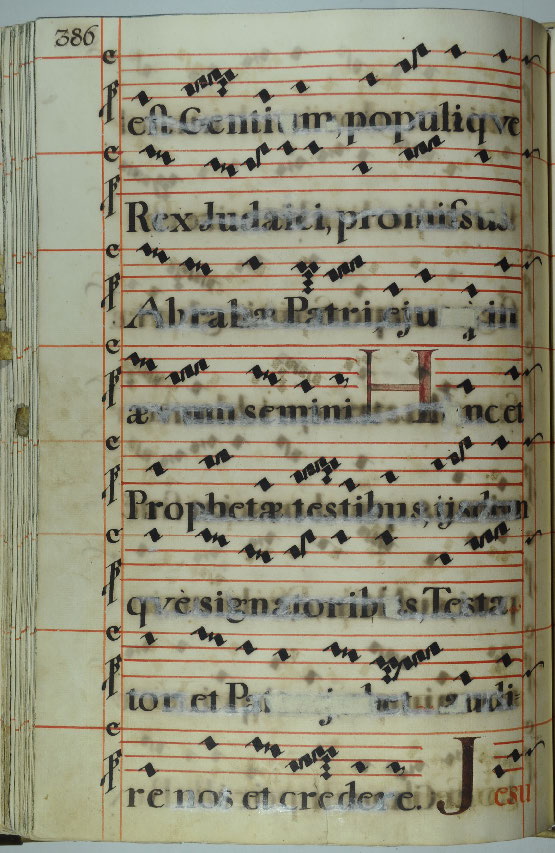 386
est Gentium, populiqve
Rex Judaici, promissus
Abrahæ Patri, ejusq; in
ævum semini. Hunc et
Prophetæ testibus, ijsdem
qvè signatoribus, Testa
tor et Pater
re nos et credere. Jesu